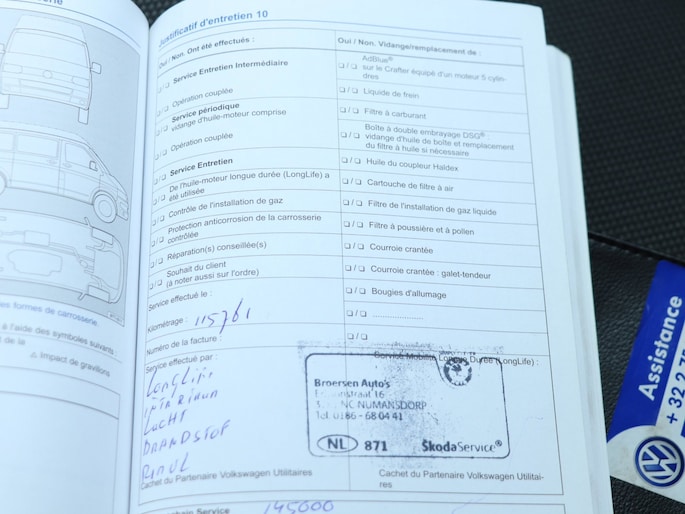 es formes de carrosserie.
à l'aide des symboles suivants :
de la
⚠ Impact de gravillons
Justificatif d'entretien 10
Oui / Non. Ont été effectués :
❏ / ❏ Service Entretien Intermédiaire
❏ / ❏ Opération couplée
❏ / ❏ Service périodique
vidange d'huile-moteur comprise
❏ / ❏ Opération couplée
❏ / ❏ Service Entretien
❏ / ❏ De l'huile-moteur longue durée (LongLife) a
été utilisée
❏ / ❏ Contrôle de l'installation de gaz
❏ / ❏ Protection anticorrosion de la carrosserie
contrôlée
❏ / ❏ Réparation(s) conseillée(s)
❏ / ❏ Souhait du client
(à noter aussi sur l'ordre)
Service effectué le :
Kilométrage : 115761
Numéro de la facture :
Service effectué par :
LONGLIFE
INTERIEUR
LUCHT
BRANDSTOF
Cachet du Partenaire Volkswagen Utilitaires
Oui / Non. Vidange/remplacement de :
❏ / ❏ AdBlue®
sur le Crafter équipé d'un moteur 5 cylin-
dres
❏ / ❏ Liquide de frein
❏ / ❏ Filtre à carburant
❏ / ❏ Boîte à double embrayage DSG® :
vidange d'huile de boîte et remplacement
du filtre à huile si nécessaire
❏ / ❏ Huile du coupleur Haldex
❏ / ❏ Cartouche de filtre à air
❏ / ❏ Filtre de l'installation de gaz liquide
❏ / ❏ Filtre à poussière et à pollen
❏ / ❏ Courroie crantée
❏ / ❏ Courroie crantée : galet-tendeur
❏ / ❏ Bougies d'allumage
❏ / ❏ .....................
❏ / ❏
Service Mobilité Longue Durée (LongLife) :
Broersen Auto's
straat 16
NC NUMANSDORP
Tel. 0186-680441
NL 871 ŠkodaService®
Cachet du Partenaire Volkswagen Utilitai-
res
chain Service 145000
Assistance
+ 32 2